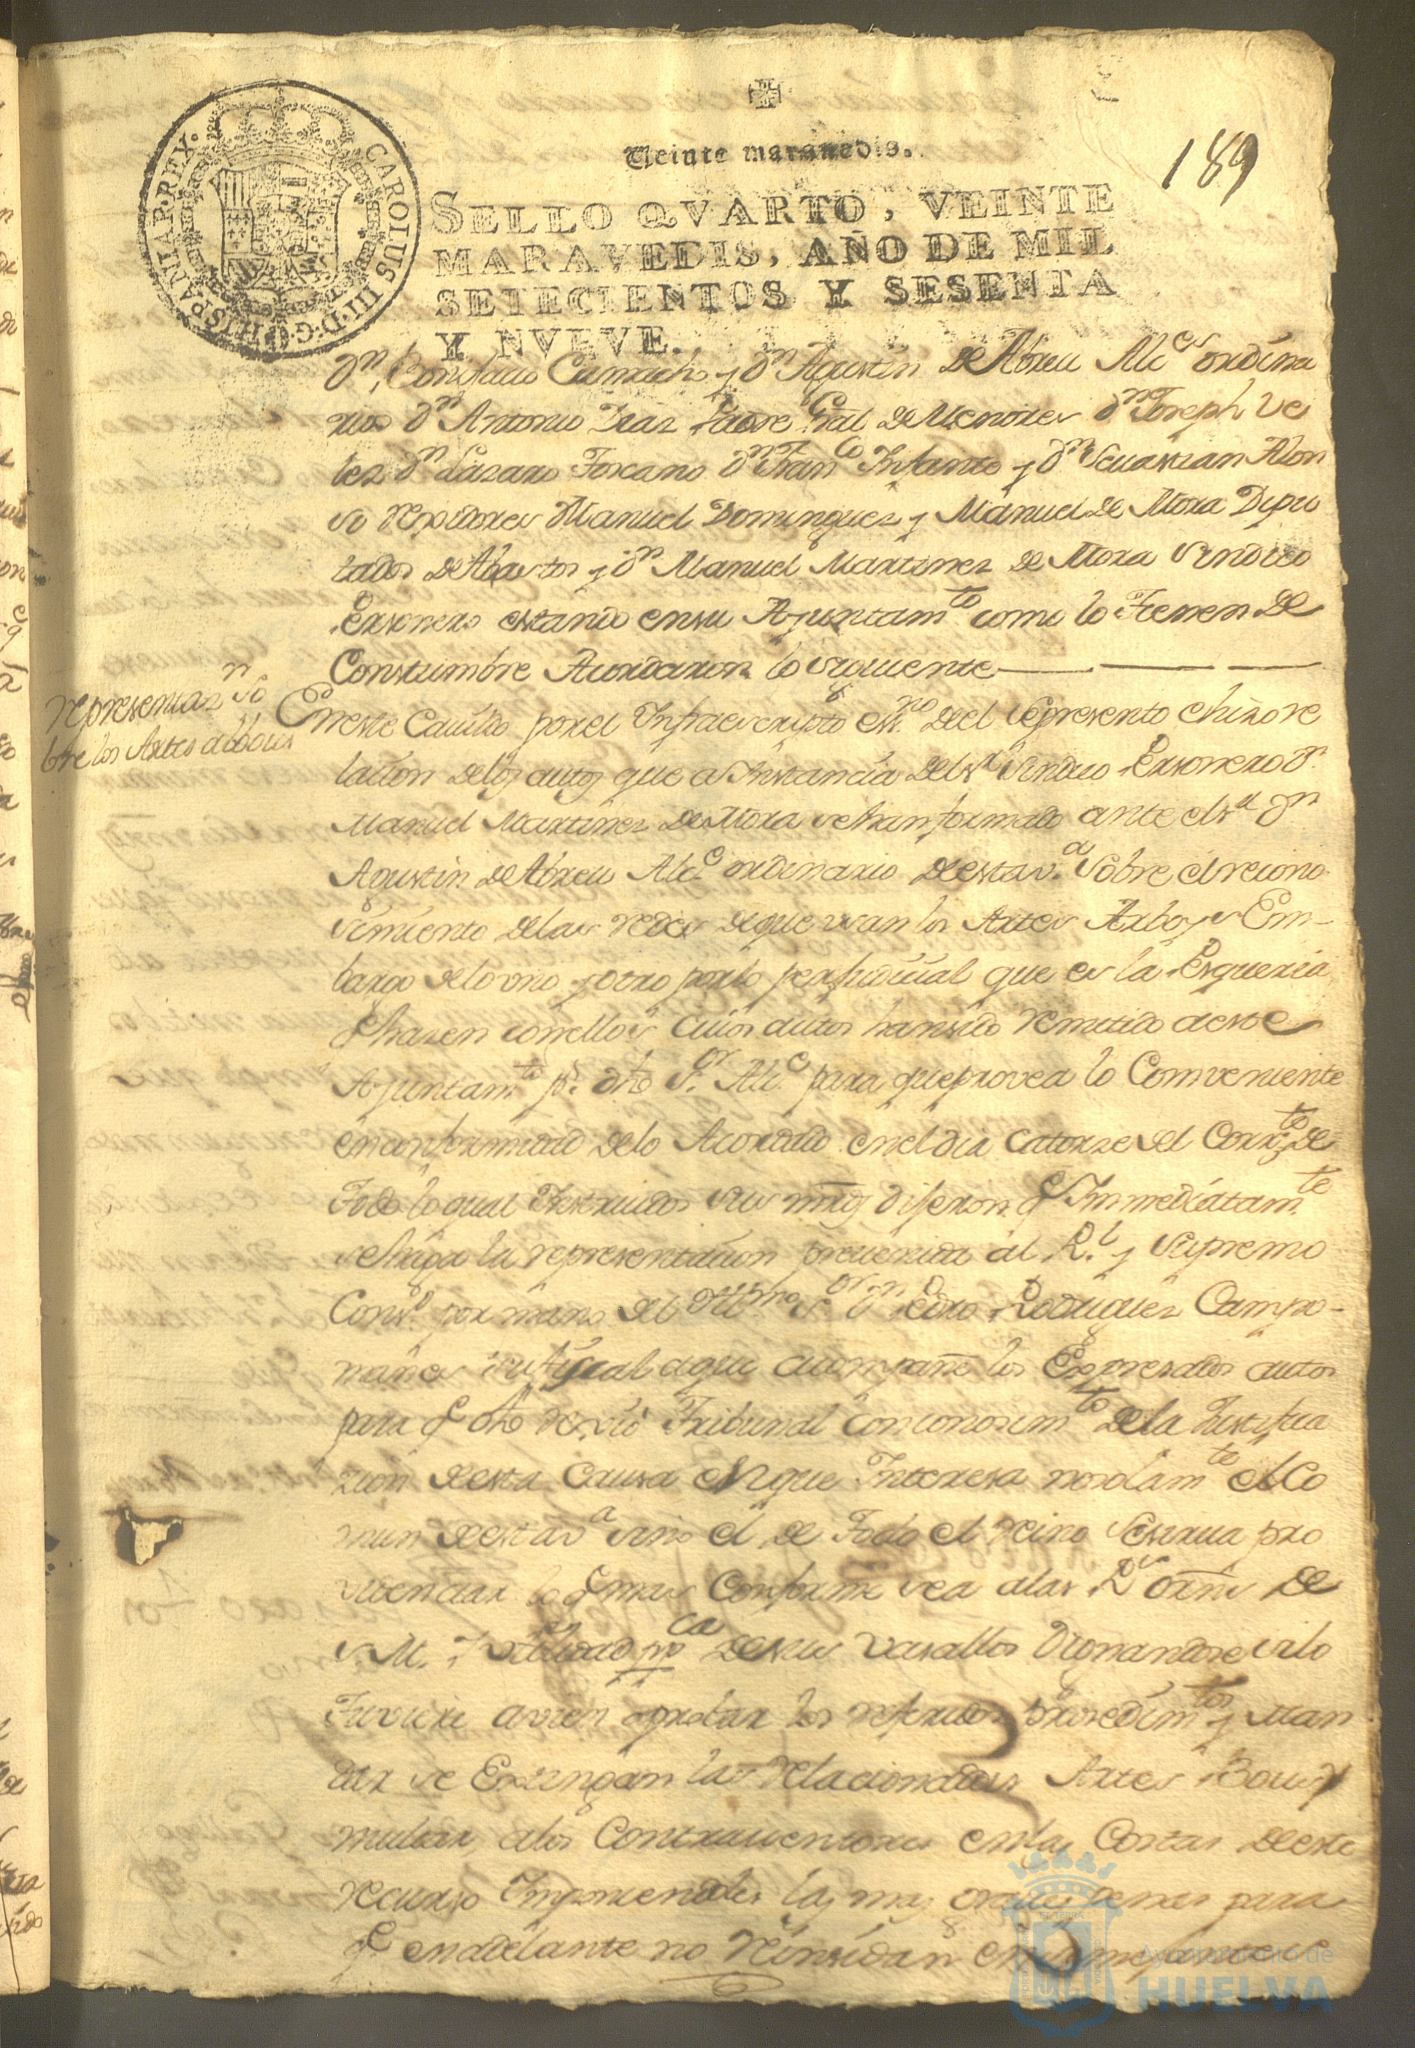 189
Veinte maravedis.
SELLO QVARTO, VEINTE
MARAVEDIS, AÑO DE MIL
SETECIENTOS Y SESENTA
Y NVEVE.
CAROLUS III. D. G. HISPANIAR. REX.
Dn. Bonifacio Camacho y Dn Agustin de Abreu Alces ordina
rios Dn Antonio Padre Gral de Menores Dn Joseph Ve
lez Dn Lazaro Toscano Dn Franco Infante y Dn Sevastian Alon
so Rexidores Manuel Dominguez y Manuel de Mora Dipu
tados de Abastos y Dn Manuel Martinez de Mora Sindico
Personero estando en su Ayuntamto como lo tienen de
Constumbre Acordaron lo siguiente
representazn so
bre los Artes de Bous
En este Cavildo por el Infraescripto esno. de el se presento e hizo re
lacion de los autos que a Instancia del Sr Sindico Personero Dn
Manuel Martinez de Mora se han formado ante el Sr Dn
Agustin de Abreu Alce ordinario de esta va. Sobre el recono
simiento de las redes de que usan los Artes y Em-
bargo de lo uno y otro por lo perjudicial que es la Pesqueria
q hazen con ellos cuios autos han sido remitido a este
Ayuntamto pr. dho Sor. Alce para que provea lo Comveniente
en conformidad de lo Acordado en el dia Catorze del Corrte de
Todo lo qual Instruidos sus mrds dijeron q Immediatamte
se haga la representacion prevenida al Rl. y Supremo
Consº por mano del Illmo Sor Dn Pedro Rodriguez Campo-
manes su fiscal a que acompañe los Expresados autos
para q dho Tribunal con conosimto de la Justifica
zion de esta Causa en que Interesa no solamte el Co
mun de esta va sino el de Todo el Reino se sirva pro
videnciar lo q mas Conforme sea a las Rs ornes de
S. M. y utilidad pca de sus vasallos Dignandose si lo
Tuviere a vien aprobar los referidos prosedimtos y Man
dar se Extingan las relacionadas Artes Bous y
multar a los Contraventores en las Costas de este
recurso Imponiendoles las mas graves penas para
q en adelante no Reinsidan en semejante
Ayuntamiento de
HUELVA